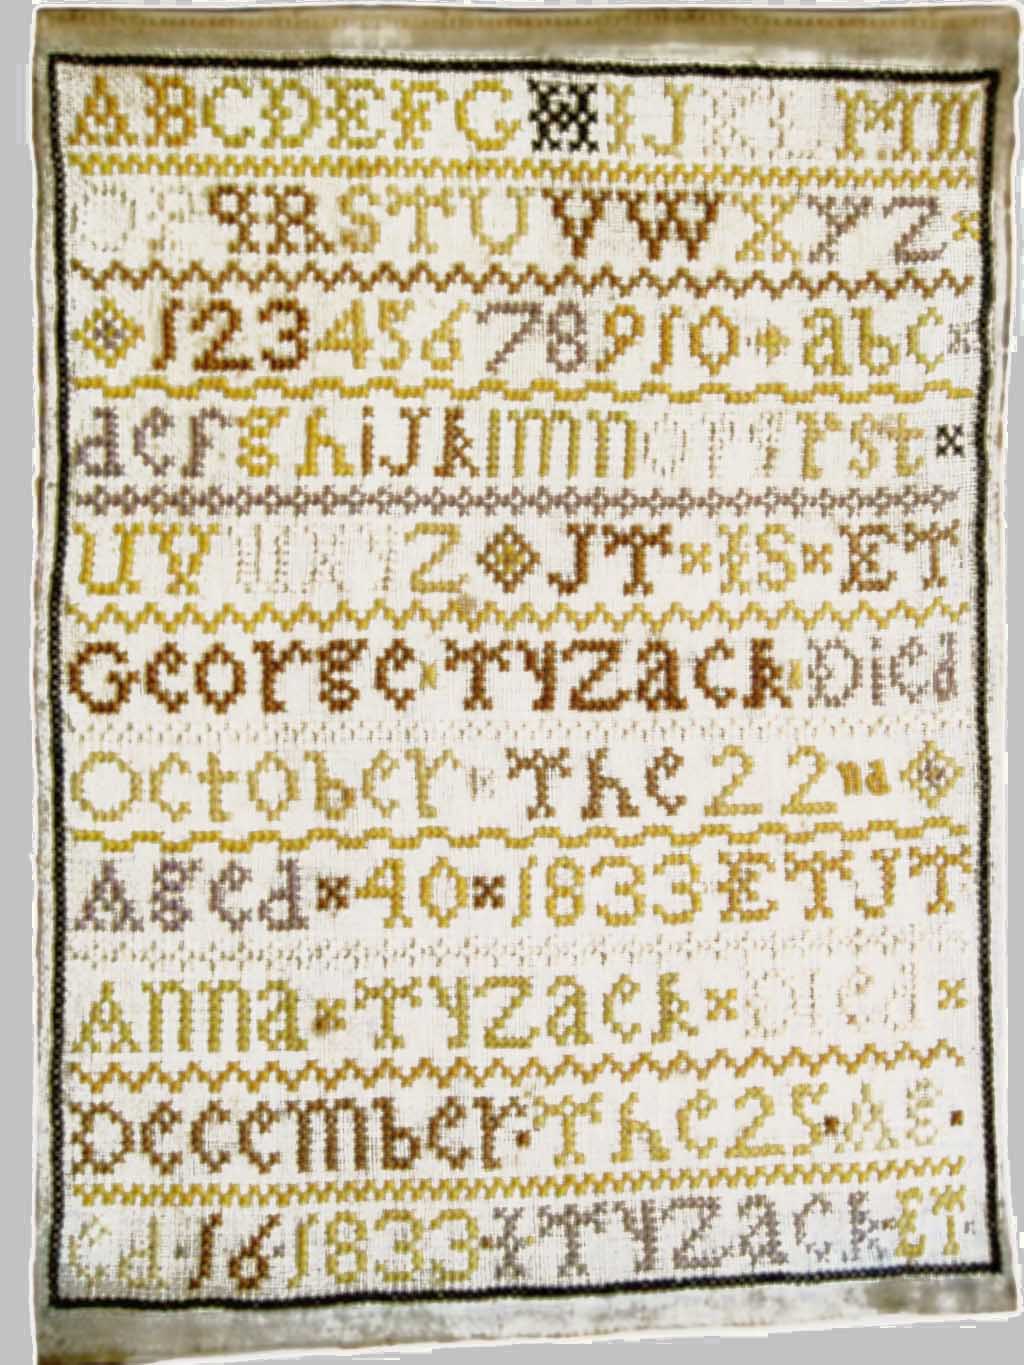 ABCDEFGHIJKLMN
OPQRSTUVWXYZ
12345678910 abc
defghijklmnopqrst
UVWXYZ JT IS ET
George Tyzack Died
October The 22nd
Aged 40 1833 ET JT
Anna Tyzack Died
December The 25 Ag
ed 16 1833 I TYzack ET